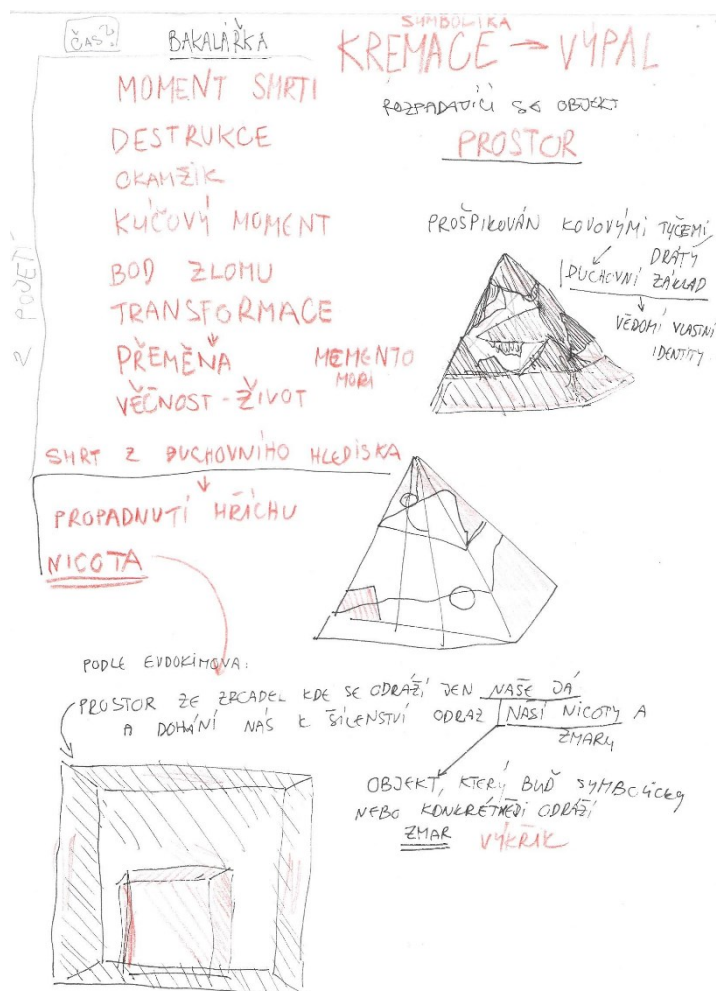 ČAS?
BAKALÁŘKA
SYMBOLIKA
KREMACE → VÝPAL
ROZPADAVÍCÍ SE OBJEKT
PROSTOR
MOMENT SMRTI
DESTRUKCE
OKAMŽIK
KÚČOVÝ MOMENT
BOD ZLOMU
TRANSFORMACE
PŘEMĚNA
VĚČNOST - ŽIVOT
MEMENTO
MORI
2 POJETÍ
PROŠPIKOVÁN KOVOVÝMI TYČEMI
DRÁTY
DUCHOVNÍ ZÁKLAD
VĚDOMÍ VLASTNÍ
IDENTITY
SMRT Z DUCHOVNÍHO HLEDISKA
PROPADNUTÍ HŘÍCHU
NICOTA
PODLE EVDOKIMOVA:
PROSTOR ZE ZRCADEL KDE SE ODRÁŽÍ JEN NAŠE JÁ
A DOHÁNÍ NÁS K ŠÍLENSTVÍ ODRAZ NAŠÍ NICOTY A
ZMARU
OBJEKT, KTERÝ BUĎ SYMBOLICKY
NEBO KONKRÉTNĚJI ODRÁŽÍ
ZMAR VÝKŘIK